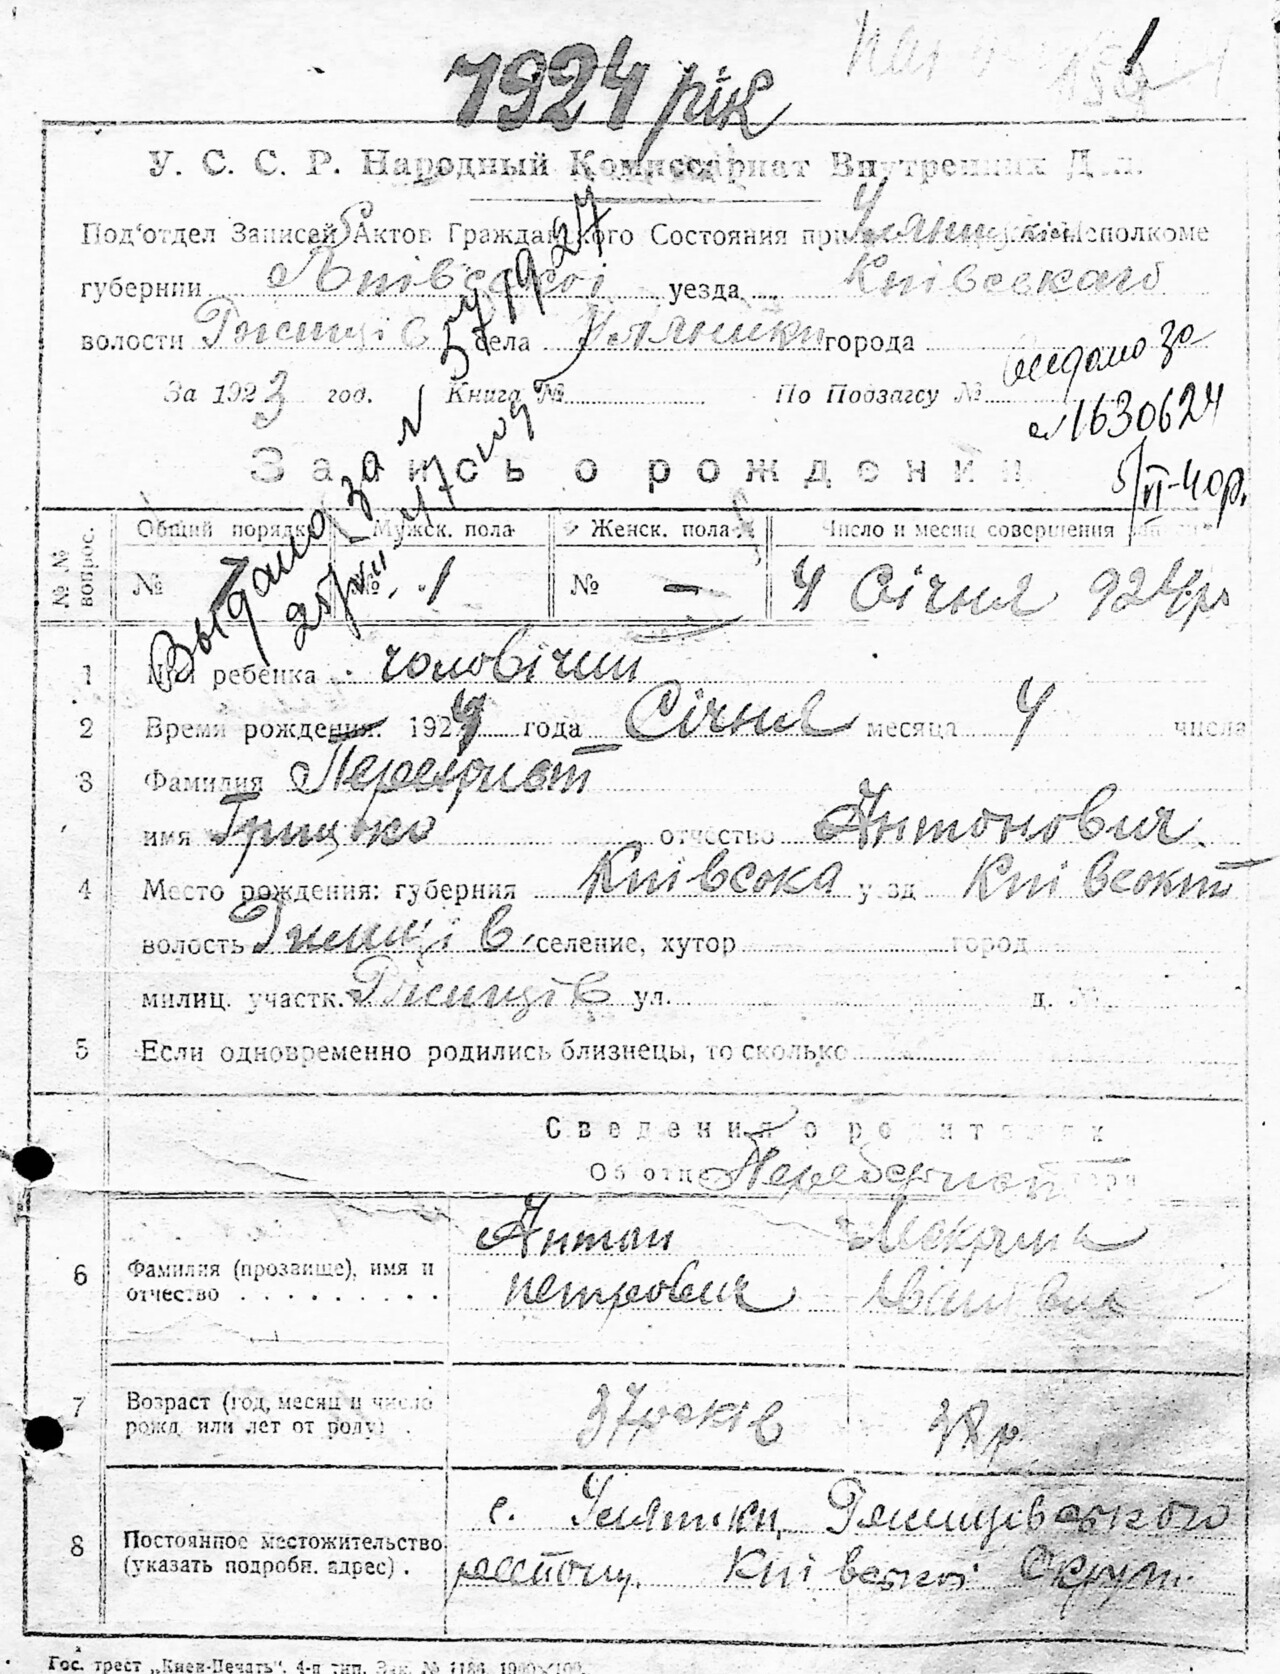 1924 рік
1
У. С. С. Р. Народный Комиссариат Внутренних Дел.
Под'отдел Записей Актов Гражданского Состояния при Исполкоме
губернии Київської уезда Київського
волости села Уляники города
За 1923 год. Книга № По Подзагсу №
видано за
№ 1630624
5/VI-40р.
Запись о рождении
Выдано за №
№ № вопрос.
Общий порядк. Мужск. пола Женск. пола Число и месяц совершения записи
№ 1 № 1 № — 4 Січня 924 р
1 Имя ребенка чоловічий
2 Время рождения: 1924 года Січня месяца 4 числа
3 Фамилия
имя Грицько отчество Антонович
4 Место рождения: губерния Київська уезд Київський
волость селение, хутор город
милиц. участк. ул. д. №
5 Если одновременно родились близнецы, то сколько
Сведения о родителях
Об отце матери
6 Фамилия (прозвище), имя и отчество Антон Петрович
7 Возраст (год, месяц и число рожд. или лет от роду) 37 років 38 р.
8 Постоянное местожительство (указать подробн. адрес) с. Уляники
району Київської Округи
Гос. трест „Киев-Печать“. 4-я тип. Зак. № 1186